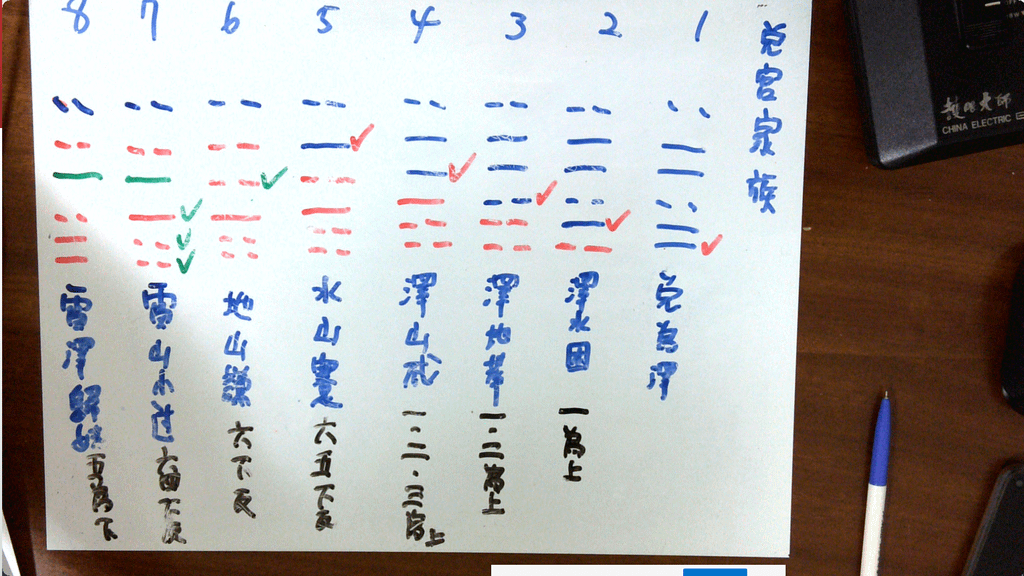 兌宮家族
1
2
3
4
5
6
7
8
兌為澤
澤水困
一為上
澤地萃
一.二為上
澤山咸
一.二.三為上
水山蹇
六五下反
地山謙
六下反
雷山小过
六四下反
雷澤歸妹
五為下
CHINA ELECTRIC